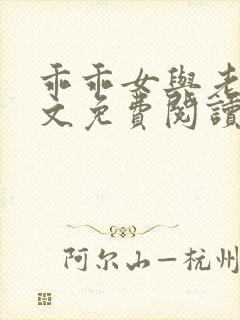 乖乖女與老
文免費閱讀
阿尔山—杭州